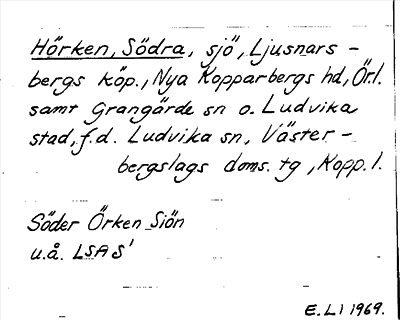 Hörken, Södra, sjö, Ljusnars-
bergs köp., Nya Kopparbergs hd, Örl.
samt Grangärde sn o. Ludvika
stad, f.d. Ludvika sn, Väster-
bergslags doms. tg, Kopp. l.
Söder Örken Siön
u.å. LSA S'
E.Li 1969.